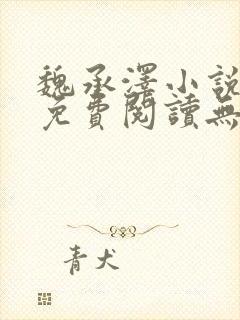 魏承澤小說
免費閱讀無
青犬